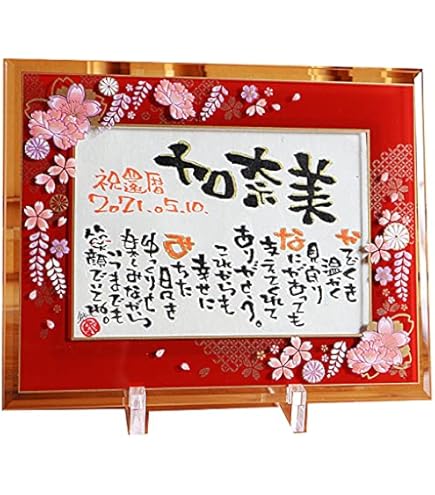 加奈美
祝還暦
2021.05.10.
かぞくを
温かく
見守り
なにがあっても
支えてくれて
ありがとう。
これからも
幸せに
みちた
日々を
ゆっくりと
楽しみながら
いつまでも
笑顔でいてね。